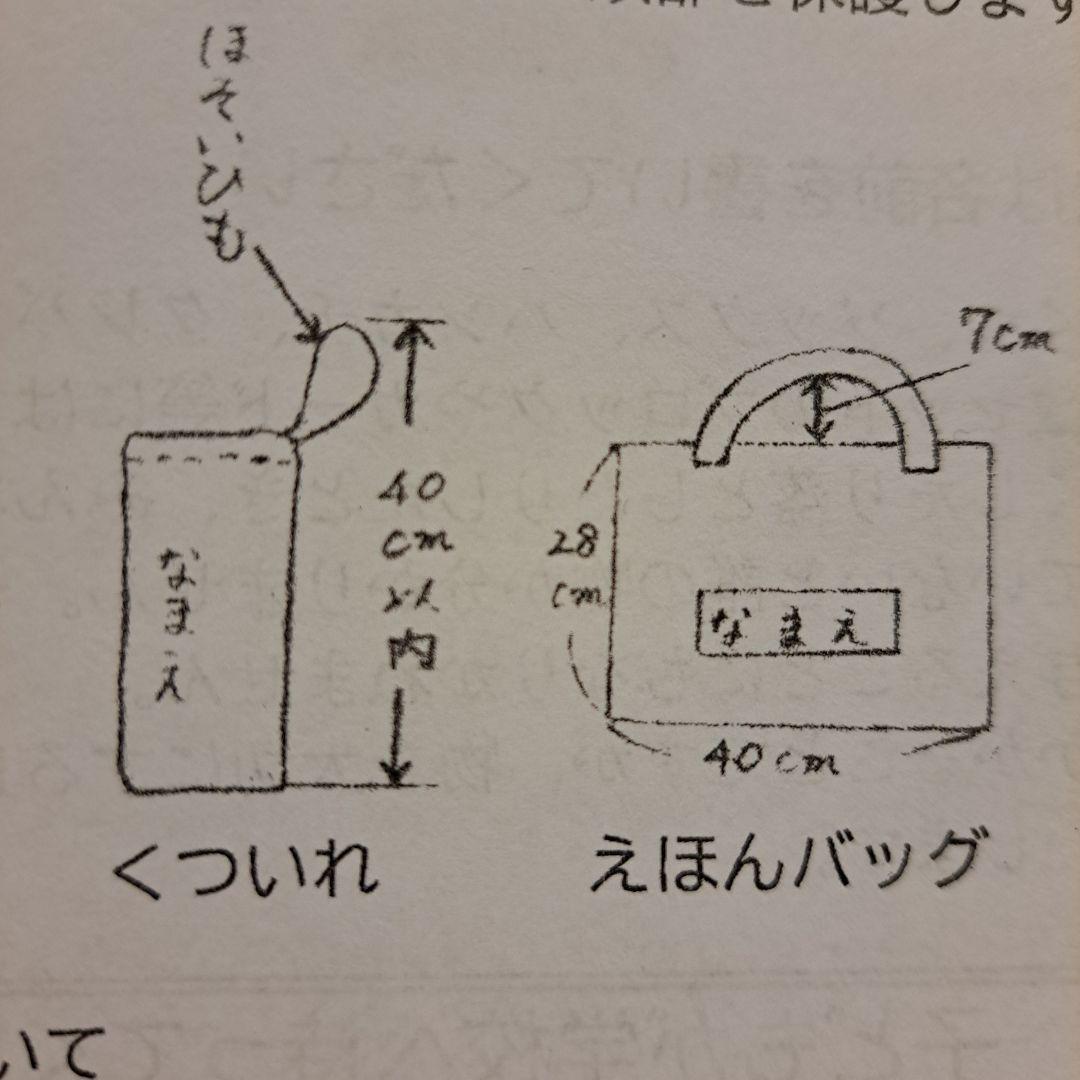 を保護します
ほそいひも
40
cm
以
内
なまえ
くついれ
7cm
28
cm
なまえ
40cm
えほんバッグ
いて